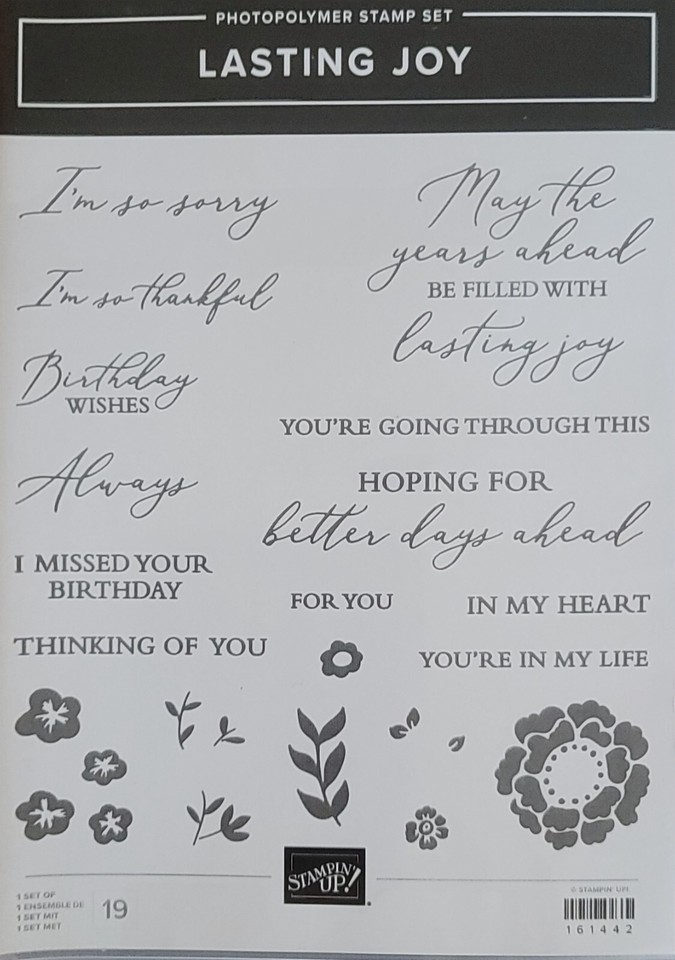 PHOTOPOLYMER STAMP SET
LASTING JOY
I'm so sorry
I'm so thankful
Birthday
WISHES
Always
I MISSED YOUR
BIRTHDAY
THINKING OF YOU
May the
years ahead
BE FILLED WITH
lasting joy
YOU'RE GOING THROUGH THIS
HOPING FOR
better days ahead
FOR YOU
IN MY HEART
YOU'RE IN MY LIFE
1 SET OF
1 ENSEMBLE DE
1 SET MIT
1 SET MET
19
STAMPIN'
UP!
© STAMPIN' UP!
161442